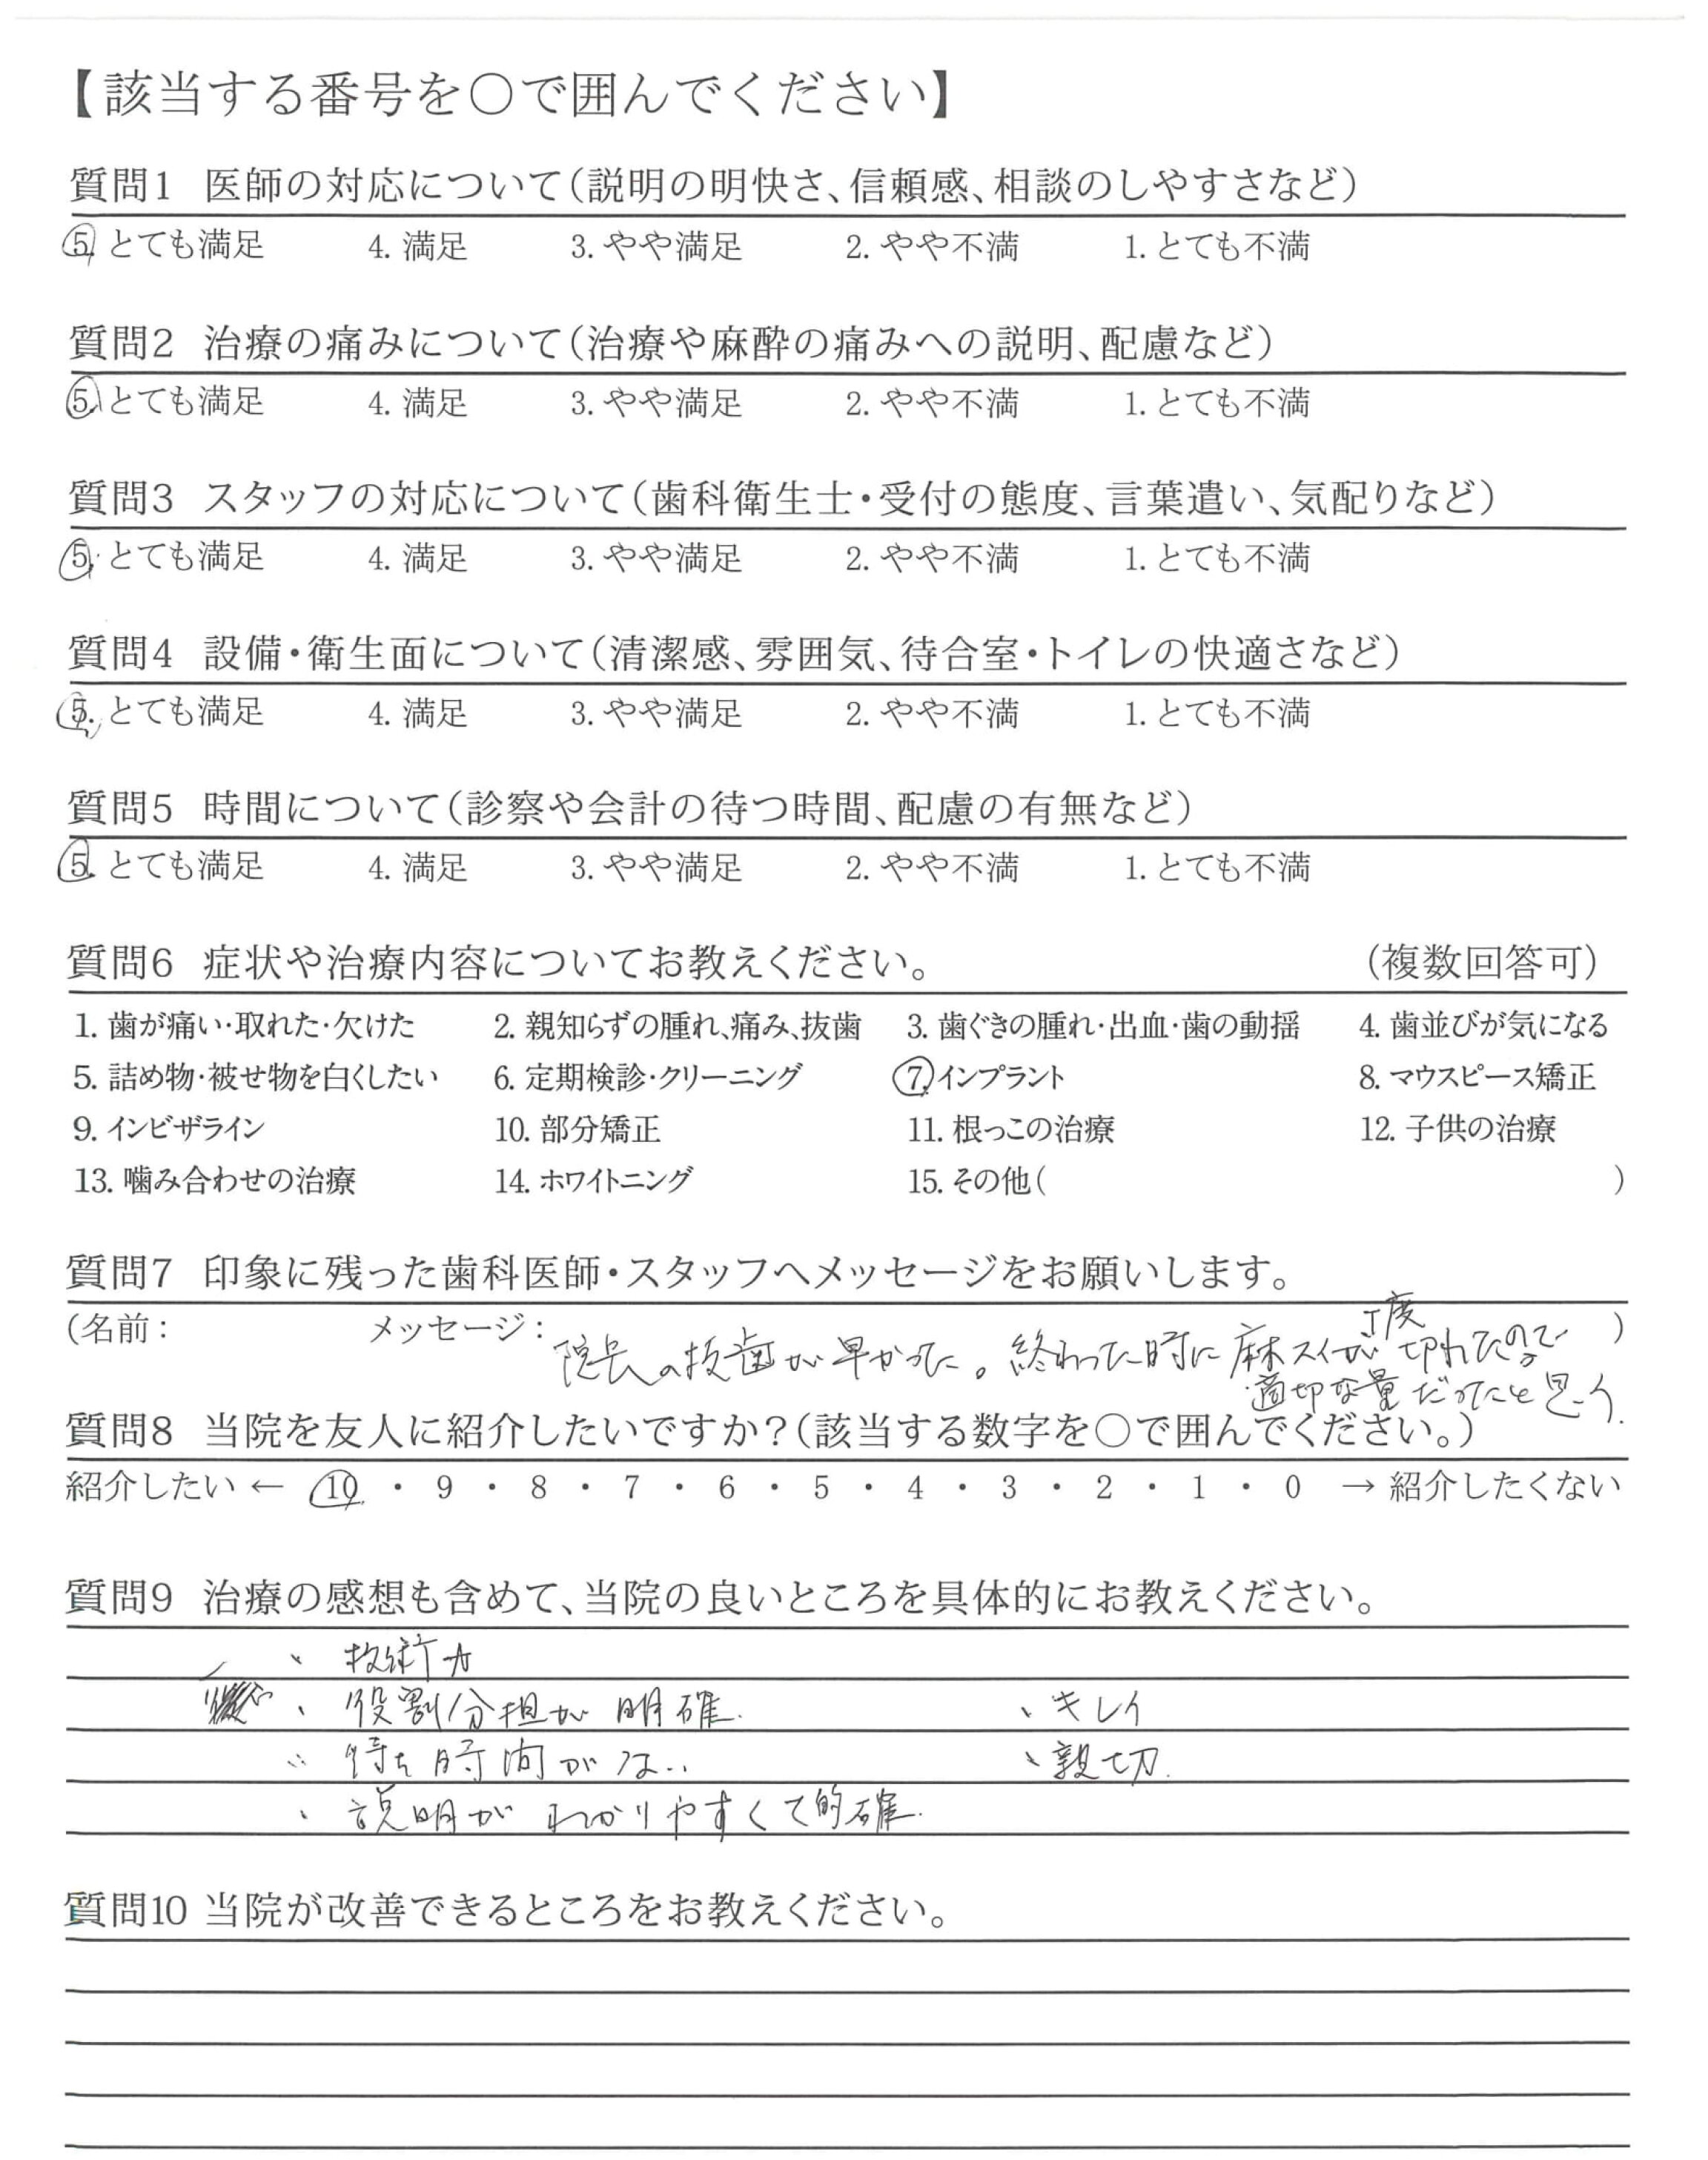 【該当する番号を○で囲んでください】
質問1 医師の対応について(説明の明快さ、信頼感、相談のしやすさなど)
5. とても満足 4. 満足 3. やや満足 2. やや不満 1. とても不満
質問2 治療の痛みについて(治療や麻酔の痛みへの説明、配慮など)
5. とても満足 4. 満足 3. やや満足 2. やや不満 1. とても不満
質問3 スタッフの対応について(歯科衛生士・受付の態度、言葉遣い、気配りなど)
5. とても満足 4. 満足 3. やや満足 2. やや不満 1. とても不満
質問4 設備・衛生面について(清潔感、雰囲気、待合室・トイレの快適さなど)
5. とても満足 4. 満足 3. やや満足 2. やや不満 1. とても不満
質問5 時間について(診察や会計の待つ時間、配慮の有無など)
5. とても満足 4. 満足 3. やや満足 2. やや不満 1. とても不満
質問6 症状や治療内容についてお教えください。 (複数回答可)
1. 歯が痛い・取れた・欠けた 2. 親知らずの腫れ、痛み、抜歯 3. 歯ぐきの腫れ・出血・歯の動揺 4. 歯並びが気になる
5. 詰め物・被せ物を白くしたい 6. 定期検診・クリーニング 7. インプラント 8. マウスピース矯正
9. インビザライン 10. 部分矯正 11. 根っこの治療 12. 子供の治療
13. 噛み合わせの治療 14. ホワイトニング 15. その他( )
質問7 印象に残った歯科医師・スタッフへメッセージをお願いします。
(名前: メッセージ: 院長の抜歯が早かった。終わった時に麻スイが丁度切れたので )
適切な量だったと思う.
質問8 当院を友人に紹介したいですか?(該当する数字を○で囲んでください。)
紹介したい ← 10 ・ 9 ・ 8 ・ 7 ・ 6 ・ 5 ・ 4 ・ 3 ・ 2 ・ 1 ・ 0 → 紹介したくない
質問9 治療の感想も含めて、当院の良いところを具体的にお教えください。
、技術力
、役割分担が明確. 、キレイ
、待ち時間がない 、親切.
、説明がわかりやすくて的確.
質問10 当院が改善できるところをお教えください。